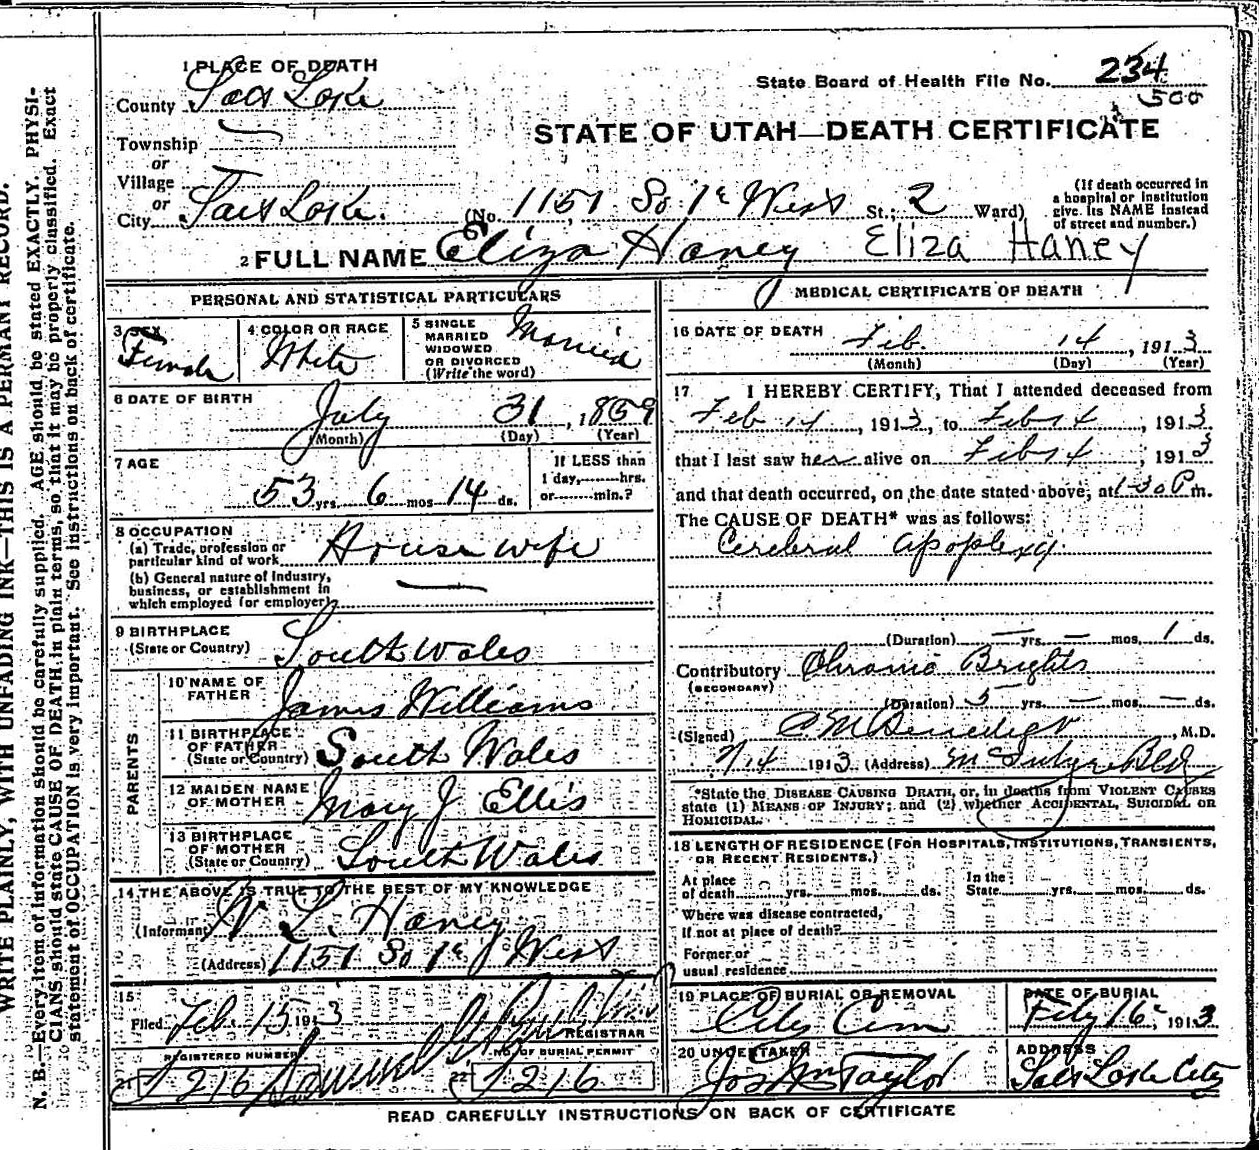 WRITE PLAINLY, WITH UNFADING INK—THIS IS A PERMANT RECORD.
N. B.—Every item of information should be carefully supplied. AGE should be stated EXACTLY. PHYSI-
CIANS should state CAUSE OF DEATH in plain terms, so that it may be properly classified. Exact
statement of OCCUPATION is very important. See instructions on back of certificate.
1 PLACE OF DEATH
County Salt Lake
State Board of Health File No. 234
500
STATE OF UTAH—DEATH CERTIFICATE
Township
or
Village
or
City Salt Lake. (No. 1151 So 1st West St.; 2 Ward)
(If death occurred in
a hospital or institution
give its NAME instead
of street and number.)
2 FULL NAME Eliza Haney Eliza Haney
PERSONAL AND STATISTICAL PARTICULARS
3 SEX Female
4 COLOR OR RACE White
5 SINGLE
MARRIED
WIDOWED
OR DIVORCED
(Write the word)
Married
6 DATE OF BIRTH
July 31, 1859
(Month) (Day) (Year)
7 AGE
53 yrs. 6 mos. 14 ds.
If LESS than
1 day,........hrs.
or........min.?
8 OCCUPATION
(a) Trade, profession or
particular kind of work House wife
(b) General nature of Industry,
business, or establishment in
which employed (or employer)
9 BIRTHPLACE
(State or Country) South Wales
PARENTS
10 NAME OF
FATHER James Williams
11 BIRTHPLACE
OF FATHER
(State or Country) South Wales
12 MAIDEN NAME
OF MOTHER Mary J Ellis
13 BIRTHPLACE
OF MOTHER
(State or Country) South Wales
14 THE ABOVE IS TRUE TO THE BEST OF MY KNOWLEDGE
(Informant) W L Haney
(Address) 1151 So 1st West
15
Filed Feb. 15 1913
REGISTRAR
REGISTERED NUMBER
NO. OF BURIAL PERMIT
21 J216
22 J216
MEDICAL CERTIFICATE OF DEATH
16 DATE OF DEATH
Feb. 14, 1913
(Month) (Day) (Year)
17 I HEREBY CERTIFY, That I attended deceased from
Feb 14, 1913, to Feb 14, 1913
that I last saw her alive on Feb 14, 1913
and that death occurred, on the date stated above, at 1-30 P m.
The CAUSE OF DEATH* was as follows:
Cerebral apoplexy
(Duration) — yrs. — mos. 1 ds.
Contributory Chronic Brights
(SECONDARY)
(Duration) 5 yrs. — mos. — ds.
(Signed) C M Benedict, M.D.
2/14 1913 (Address) McIntyre Bld
*State the DISEASE CAUSING DEATH, or, in deaths from VIOLENT CAUSES
state (1) MEANS OF INJURY; and (2) whether ACCIDENTAL, SUICIDAL OR
HOMICIDAL.
18 LENGTH OF RESIDENCE (FOR HOSPITALS, INSTITUTIONS, TRANSIENTS,
OR RECENT RESIDENTS.)
At place
of death........yrs........mos........ds.
In the
State........yrs........mos........ds.
Where was disease contracted,
If not at place of death?
Former or
usual residence
19 PLACE OF BURIAL OR REMOVAL
City Cem
DATE OF BURIAL
Feby 16, 1913
20 UNDERTAKER
Jos Wm Taylor
ADDRESS
Salt Lake City
READ CAREFULLY INSTRUCTIONS ON BACK OF CERTIFICATE